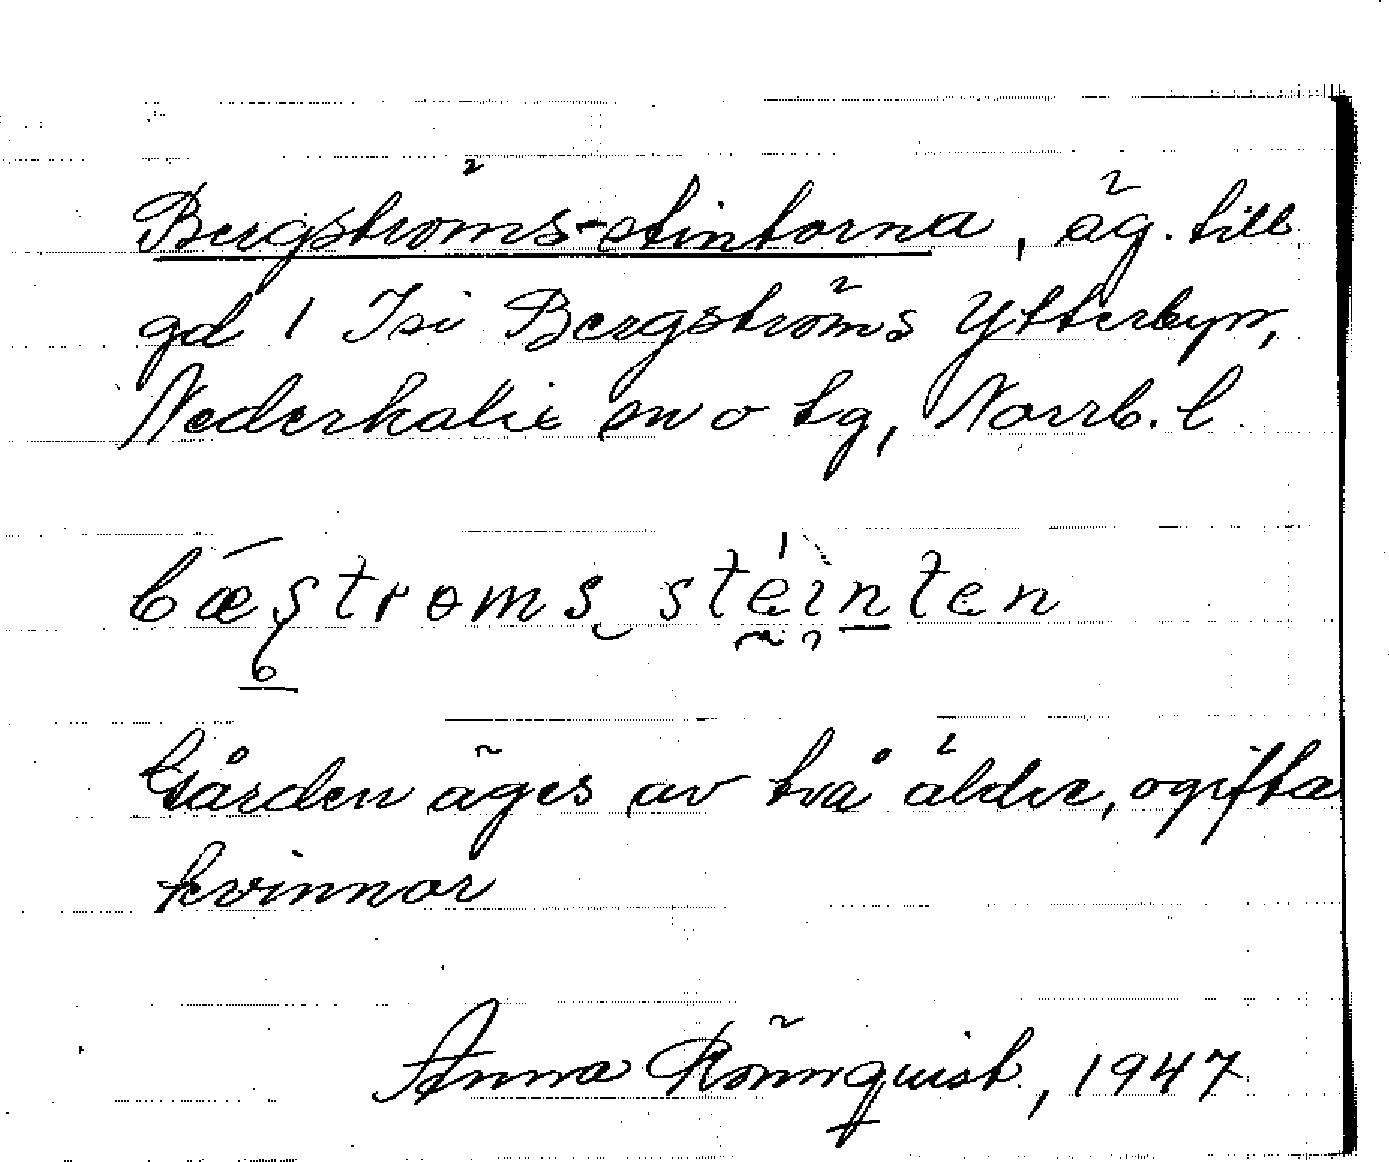 Bergströms-stintorna, äg. till
gd 1 Isi Bergströms Ytterbyn,
Nederkalix sn o tg, Norrb. l.
bæștroms steinten
Gården äges av två äldre, ogifta
kvinnor
Anna Rönnquist, 1947